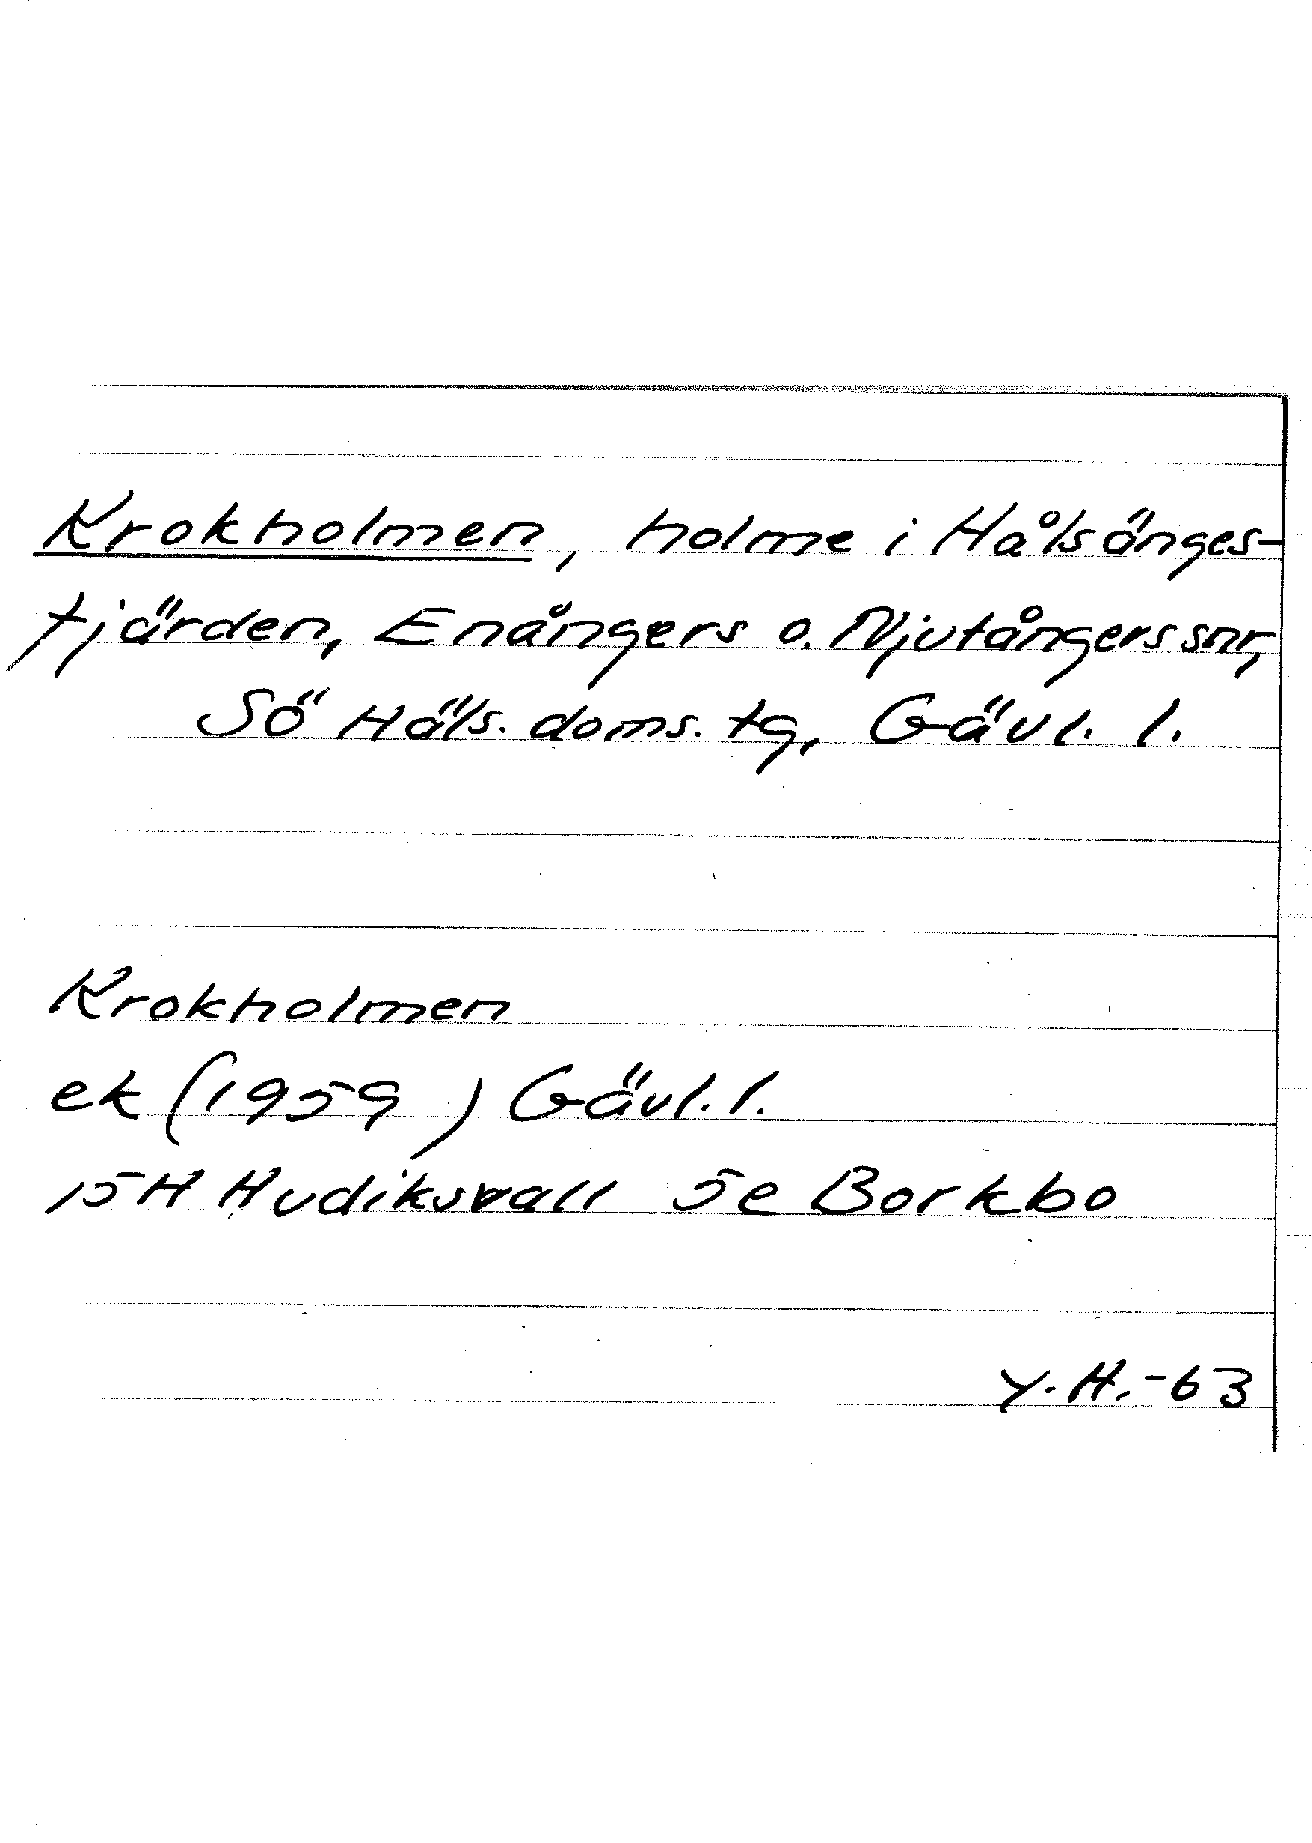 Krokholmen, holme i Hålsänges-
fjärden, Enångers o. Njutångers snr,
Sö Häls. doms. tg, Gävl. l.
Krokholmen
ek (1959) Gävl. l.
15H Hudiksvall 5e Borkbo
Y. H. -63